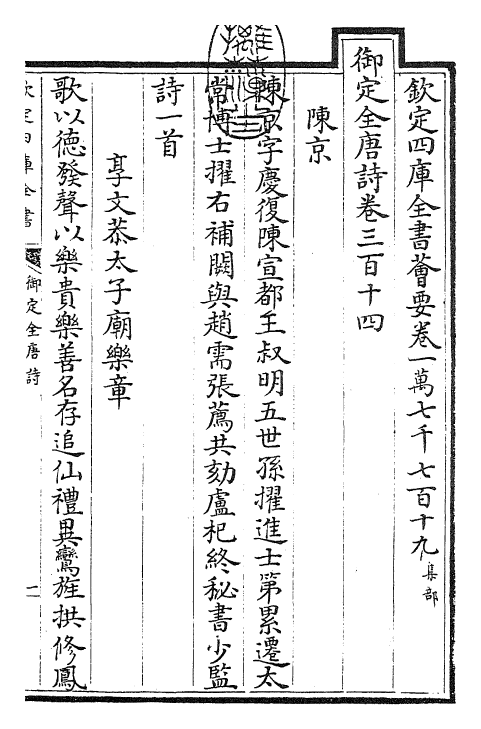 欽定四庫全書薈要卷一萬七千七百十九 集部
御定全唐詩卷三百十四
陳京
陳京字慶復陳宣都王叔明五世孫擢進士第累遷太
常博士擢右補闕與趙需張薦共劾盧杞終秘書少監
詩一首
享文恭太子廟樂章
歌以德發聲以樂貴樂善名存追仙禮異鸞旌拱修鳳
欽定四庫全書
御定全唐詩
一